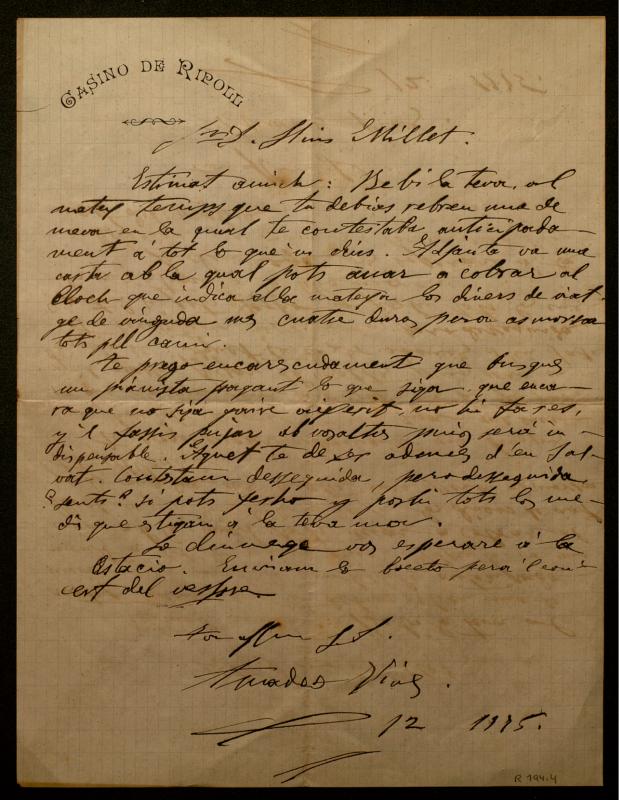 CASINO DE RIPOLL
Sr. D. Lluis Millet.
Estimat amich: Rebi la teva, al
mateix temps que tu debias rebrer una de
meva en la qual te contestaba anticipada-
ment á tot lo que 'm dius. Adjunta va una
carta ab la qual pots anar a cobrar al
lloch que indica ella mateixa los diners de viat-
ge de vinguda mes cuatre duros pera esmorsar
tots pel camí.
Te prego encarescudament que busques
un pianista pagant lo que siga, que enca-
ra que no sija gaire no hi fa res,
y 'l fassis pujar ab vosaltres puig será in-
dispensable. Aquet te de ser ademés d'en Sal-
vat. Contestam desseguida, pero desseguida
sents? si pots ferho y poshi tots los me-
dis que estigan á la teva mon.
Lo diumenge vos esperaré á la
Estació. Enviam lo boceto pera 'l con-
cert del vespre.
Amadeo Vives.
12 1895.
R 794.4